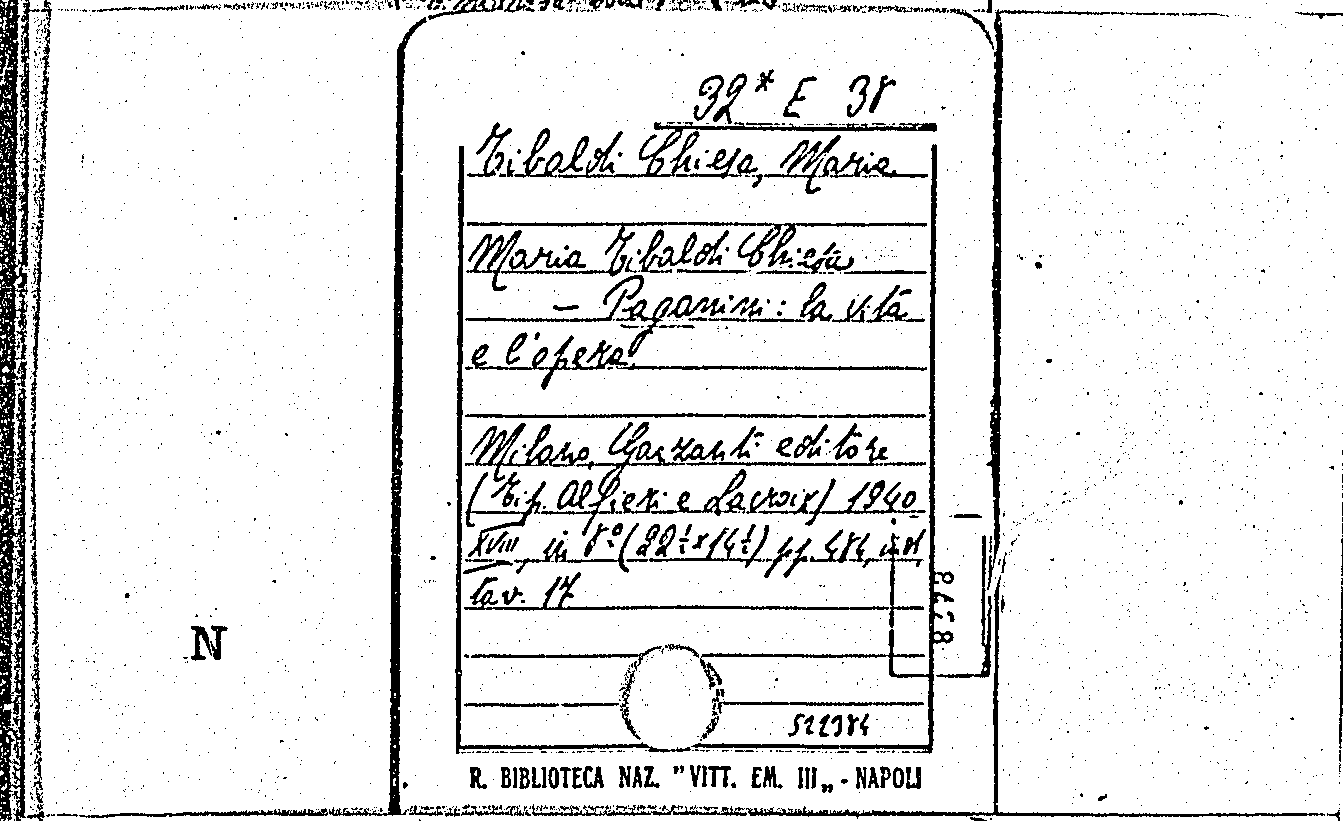 32* E 38
Tibaldi Chiesa, Maria
Maria Tibaldi Chiesa
— Paganini: la vita
e l'opera.
Milano, Garzanti editore
(Tip. Alfieri e Lacroix) 1940
XVIII, in 8º (22½×14½) pp. 484,
tav. 17
N
522984
R. BIBLIOTECA NAZ. "VITT. EM. III„ - NAPOLI